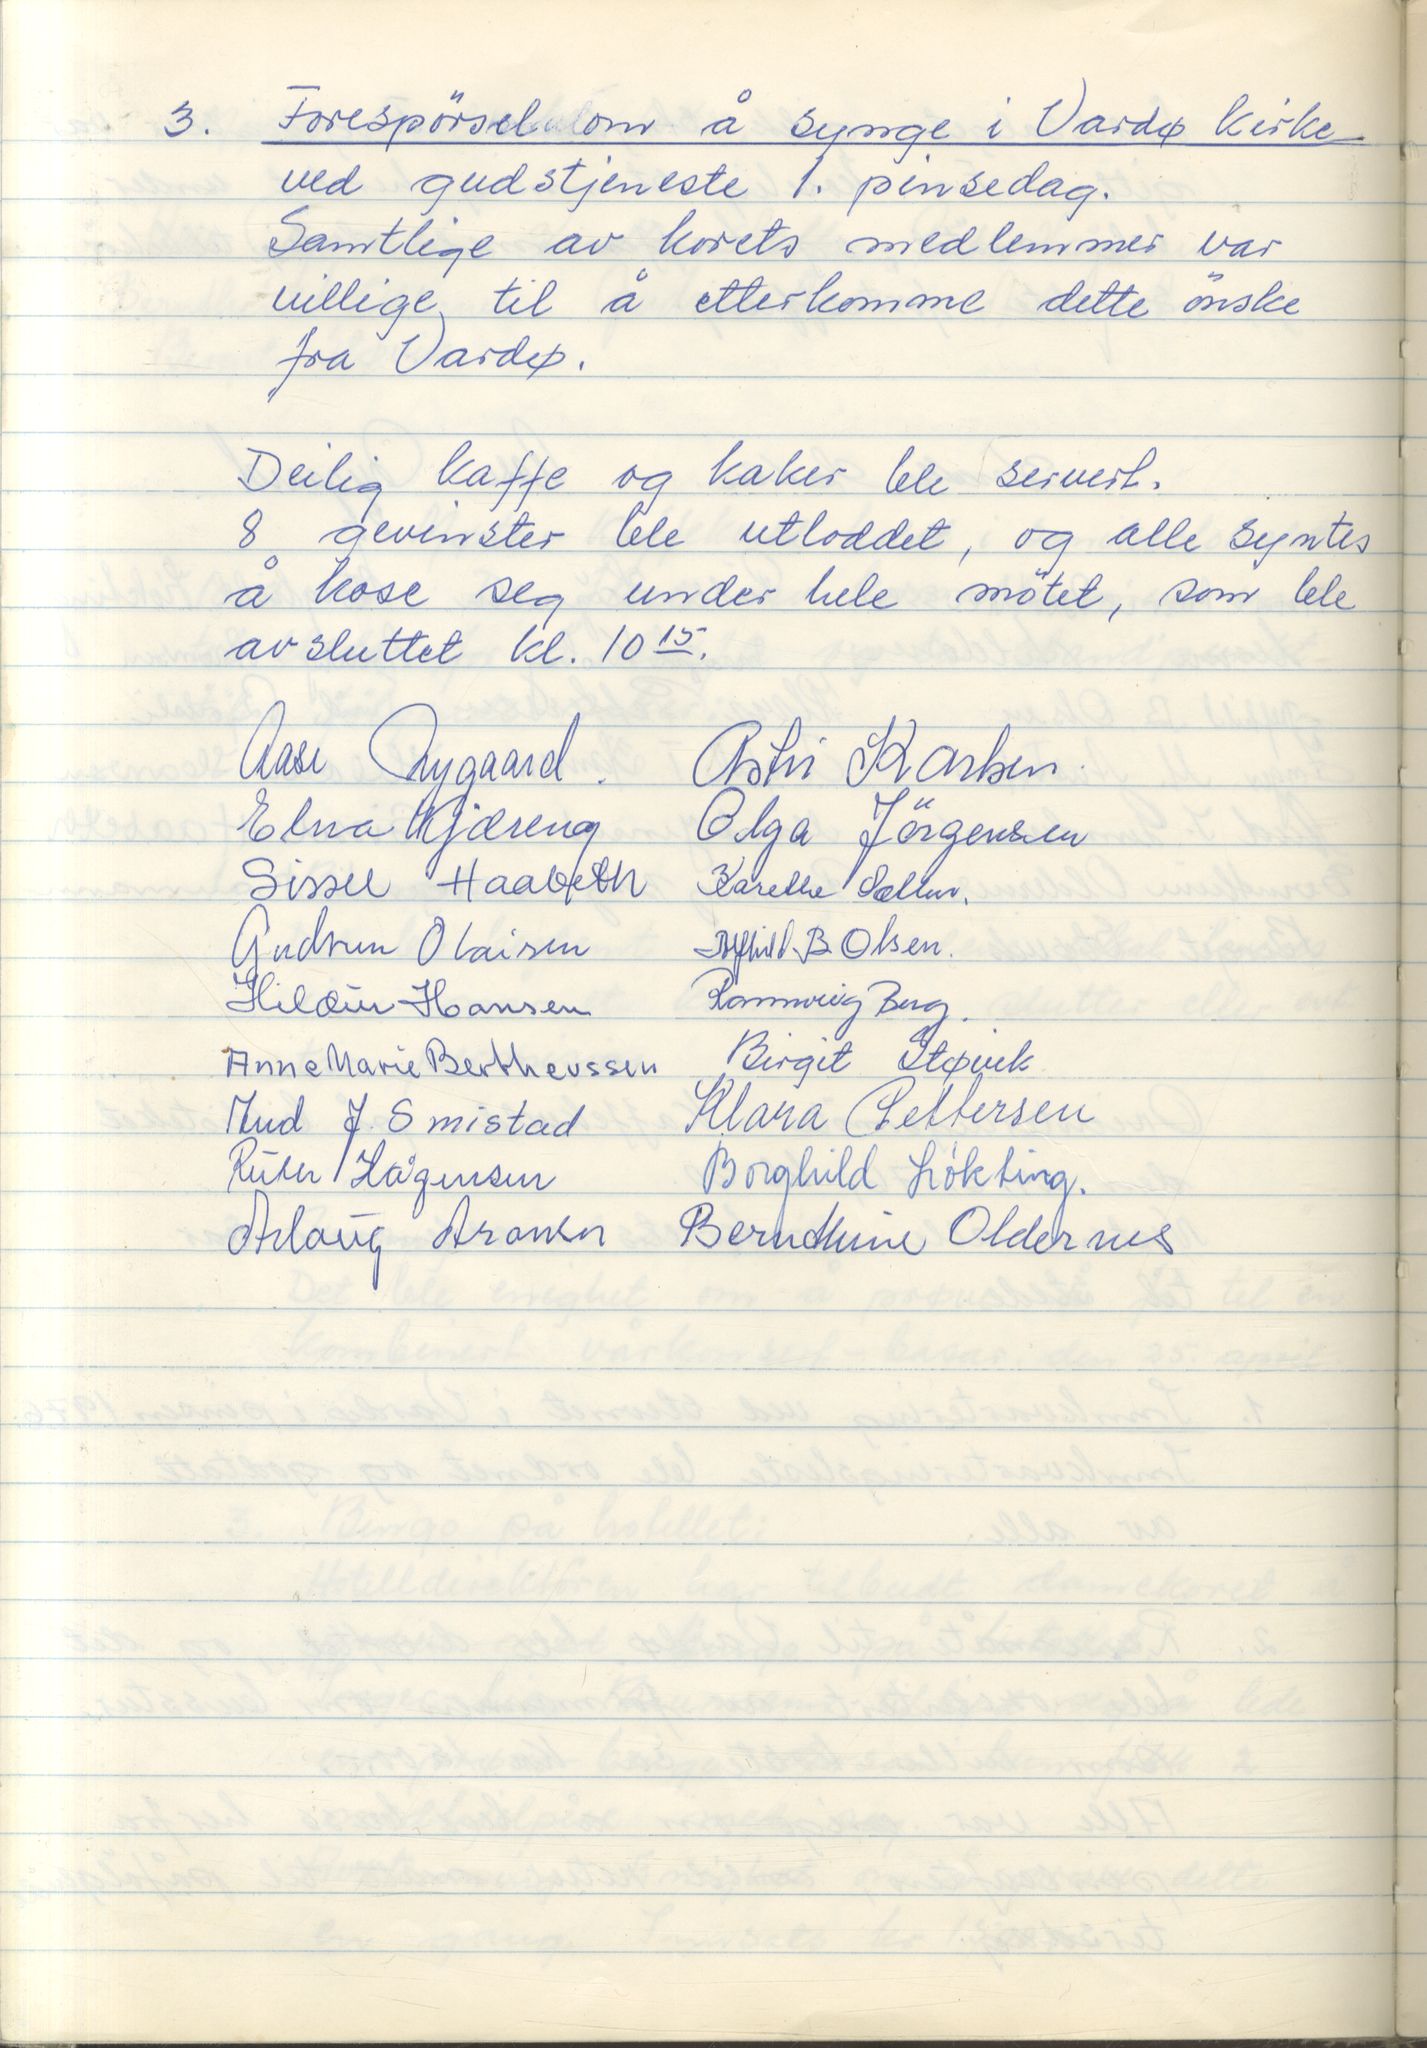 3. Forespörsel om å synge i Vardø kirke
ved gudstjeneste 1. pinsedag.
Samtlige av korets medlemmer var
villige til å etterkomme dette önske
fra Vardø.
Deilig kaffe og kaker ble servert.
8 gevinster ble utloddet, og alle syntes
å kose seg under hele mötet, som ble
avsluttet kl. 10 15.
Aase Nygaard. Astri Karlsen.
Elna Kjæreng Olga Jörgensen
Sissel Haabeth Karethe
Gudrun Olaisen B Olsen.
Hildur Hansen Rannveig Berg.
Anne Marie Bertheussen Birgit Støvik
J. Smistad Klara Pettersen
Ruth Hågensen Borghild Lökting.
Aslaug Aronsen Berndthine Oldernes